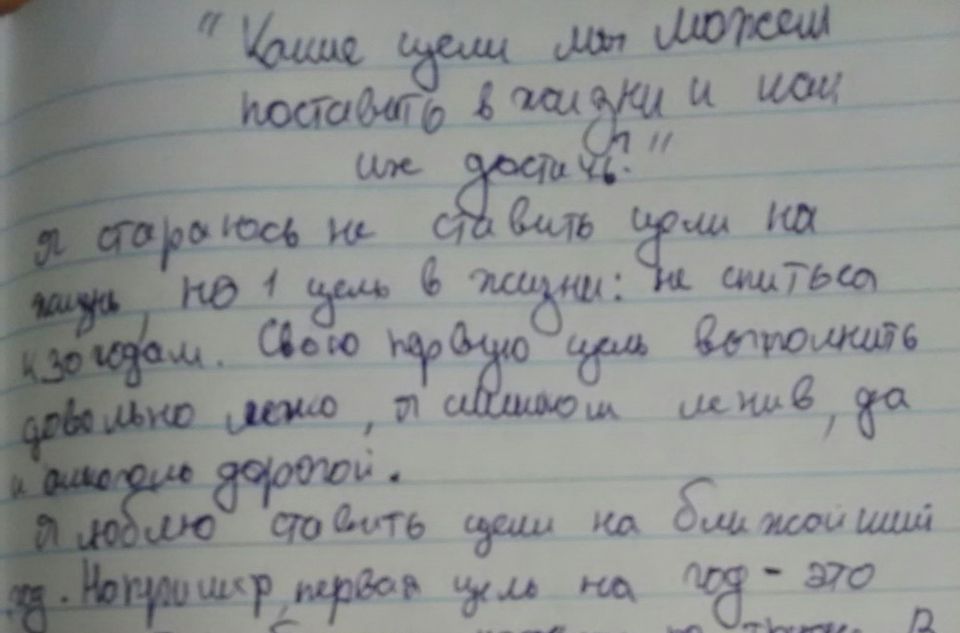 "Какие цели мы можем
поставить в жизни и как
их достичь?"
Я стараюсь не ставить цели на
жизнь, но 1 цель в жизни: не спиться
к 30 годам. Свою первую цель выполнить
довольно легко, я слишком ленив, да
и алкоголь дорогой.
Я люблю ставить цели на ближайший
год. Например, первая цель на год - это